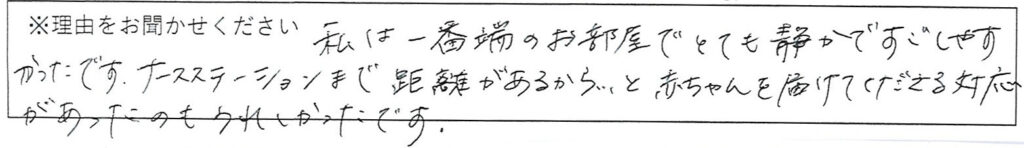 ※理由をお聞かせください 私は一番端のお部屋でとても静かですごしやす
かったです。ナースステーションまで距離があるから…と赤ちゃんを届けてくださる対応
があったのもうれしかったです。